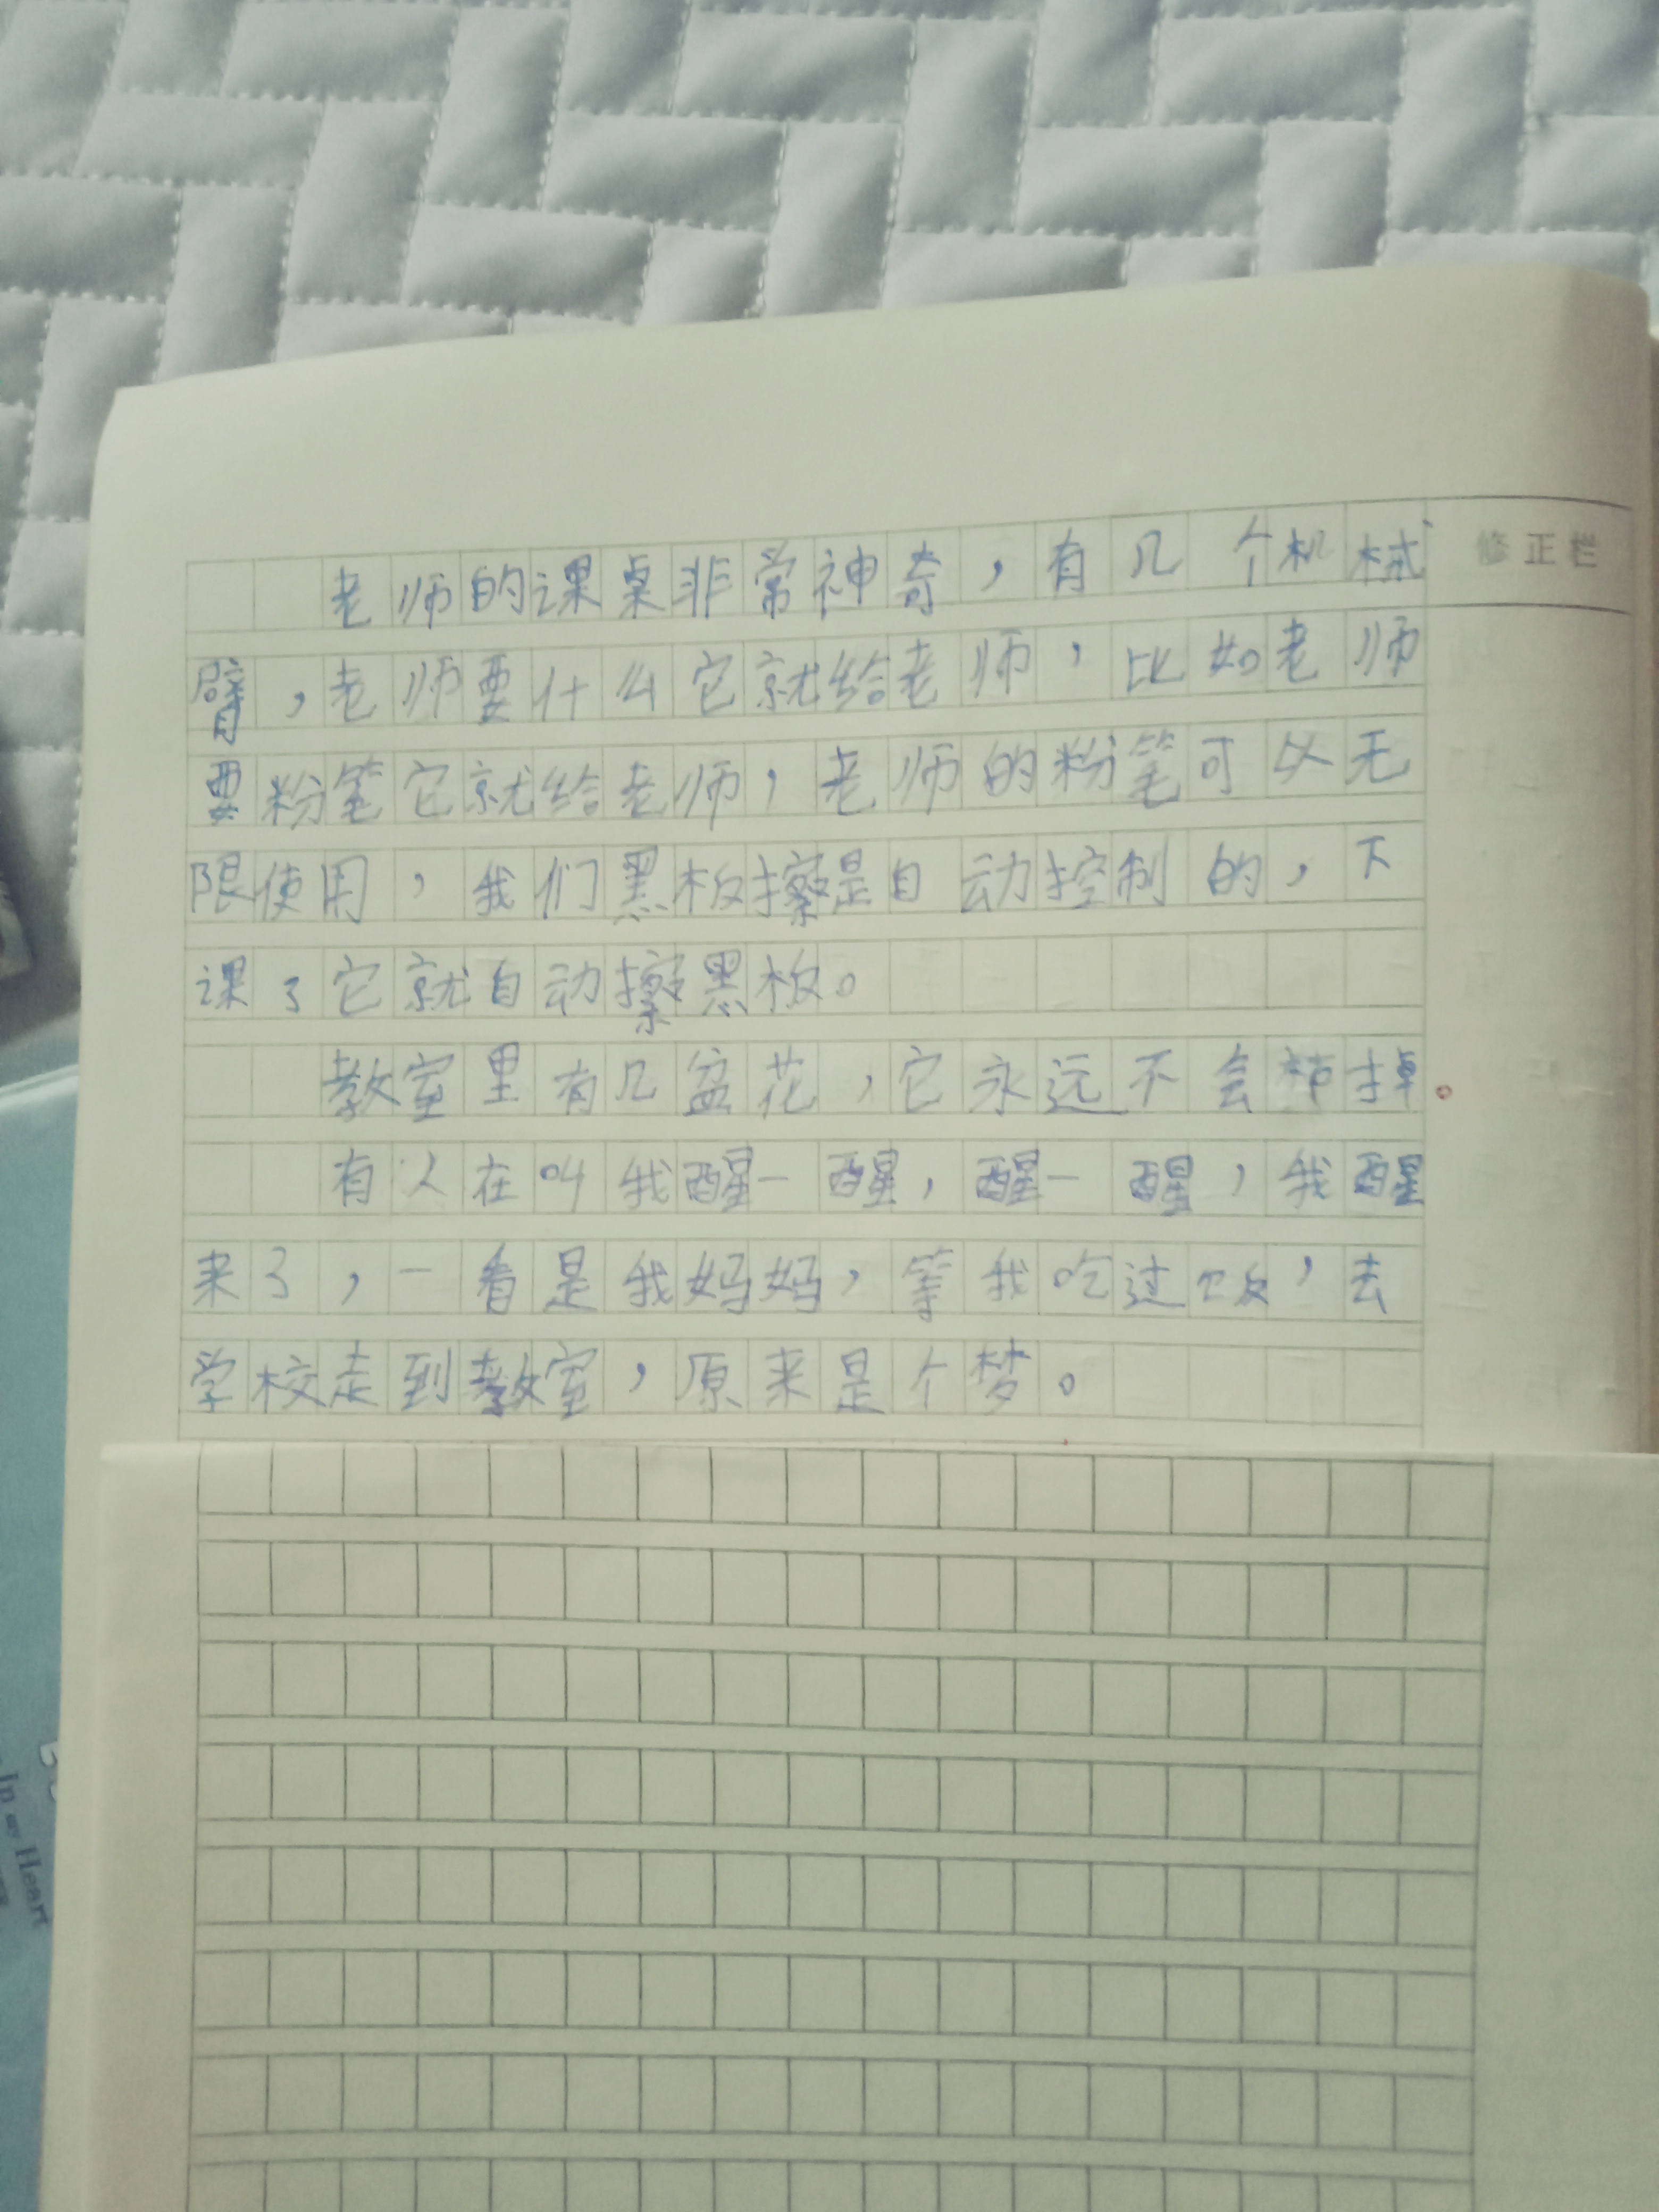 老师的课桌非常神奇，有几个机械
修正栏
臂，老师要什么它就给老师，比如老师
要粉笔它就给老师，老师的粉笔可以无
限使用，我们黑板擦是自动控制的，下
课了它就自动擦黑板。
教室里有几盆花，它永远不会枯掉。
有人在叫我醒一醒，醒一醒，我醒
来了，一看是我妈妈，等我吃过饭，去
学校走到教室，原来是个梦。
In my Heart